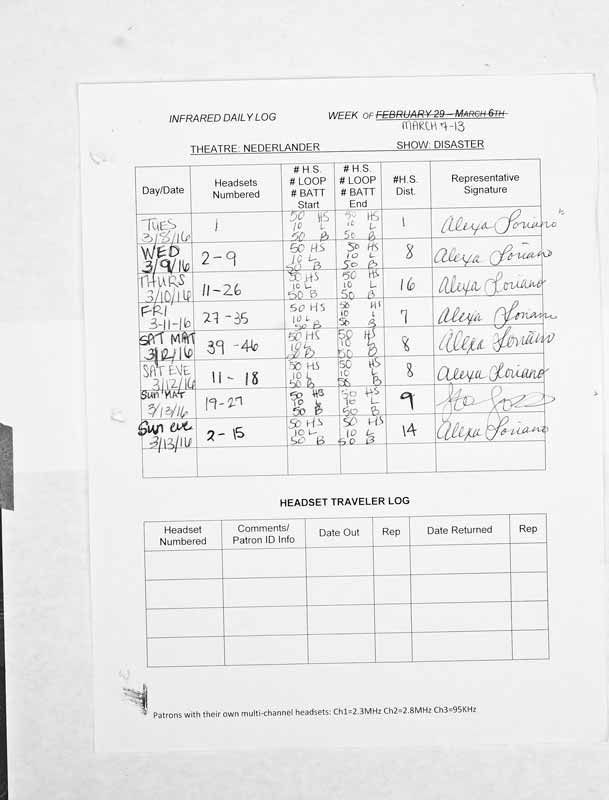 INFRARED DAILY LOG WEEK OF FEBRUARY 29 – MARCH 6TH
MARCH 7-13
THEATRE: NEDERLANDER SHOW: DISASTER
Day/Date Headsets Numbered # H.S. # LOOP # BATT Start # H.S. # LOOP # BATT End #H.S. Dist. Representative Signature
TUES 3/8/16 1 50 HS 10 L 50 B 50 HS 10 L 50 B 1 Alexa Soriano
WED 3/9/16 2-9 50 HS 10 L 50 B 50 HS 10 L 50 B 8 Alexa Soriano
THURS 3/10/16 11-26 50 HS 10 L 50 B 50 HS 10 L 50 B 16 Alexa Soriano
FRI 3-11-16 27-35 50 HS 10 L 50 B 50 HS 10 L 50 B 7 Alexa Soriano
SAT MAT 3/12/16 39-46 50 HS 10 L 50 B 50 HS 10 L 50 B 8 Alexa Soriano
SAT EVE 3/12/16 11-18 50 HS 10 L 50 B 50 HS 10 L 50 B 8 Alexa Soriano
Sun MAT 3/13/16 19-27 50 HS 10 L 50 B 50 HS 10 L 50 B 9
Sun eve 3/13/16 2-15 50 HS 10 L 50 B 50 HS 10 L 50 B 14 Alexa Soriano
HEADSET TRAVELER LOG
Headset Numbered Comments/ Patron ID Info Date Out Rep Date Returned Rep
Patrons with their own multi-channel headsets: Ch1=2.3MHz Ch2=2.8MHz Ch3=95KHz